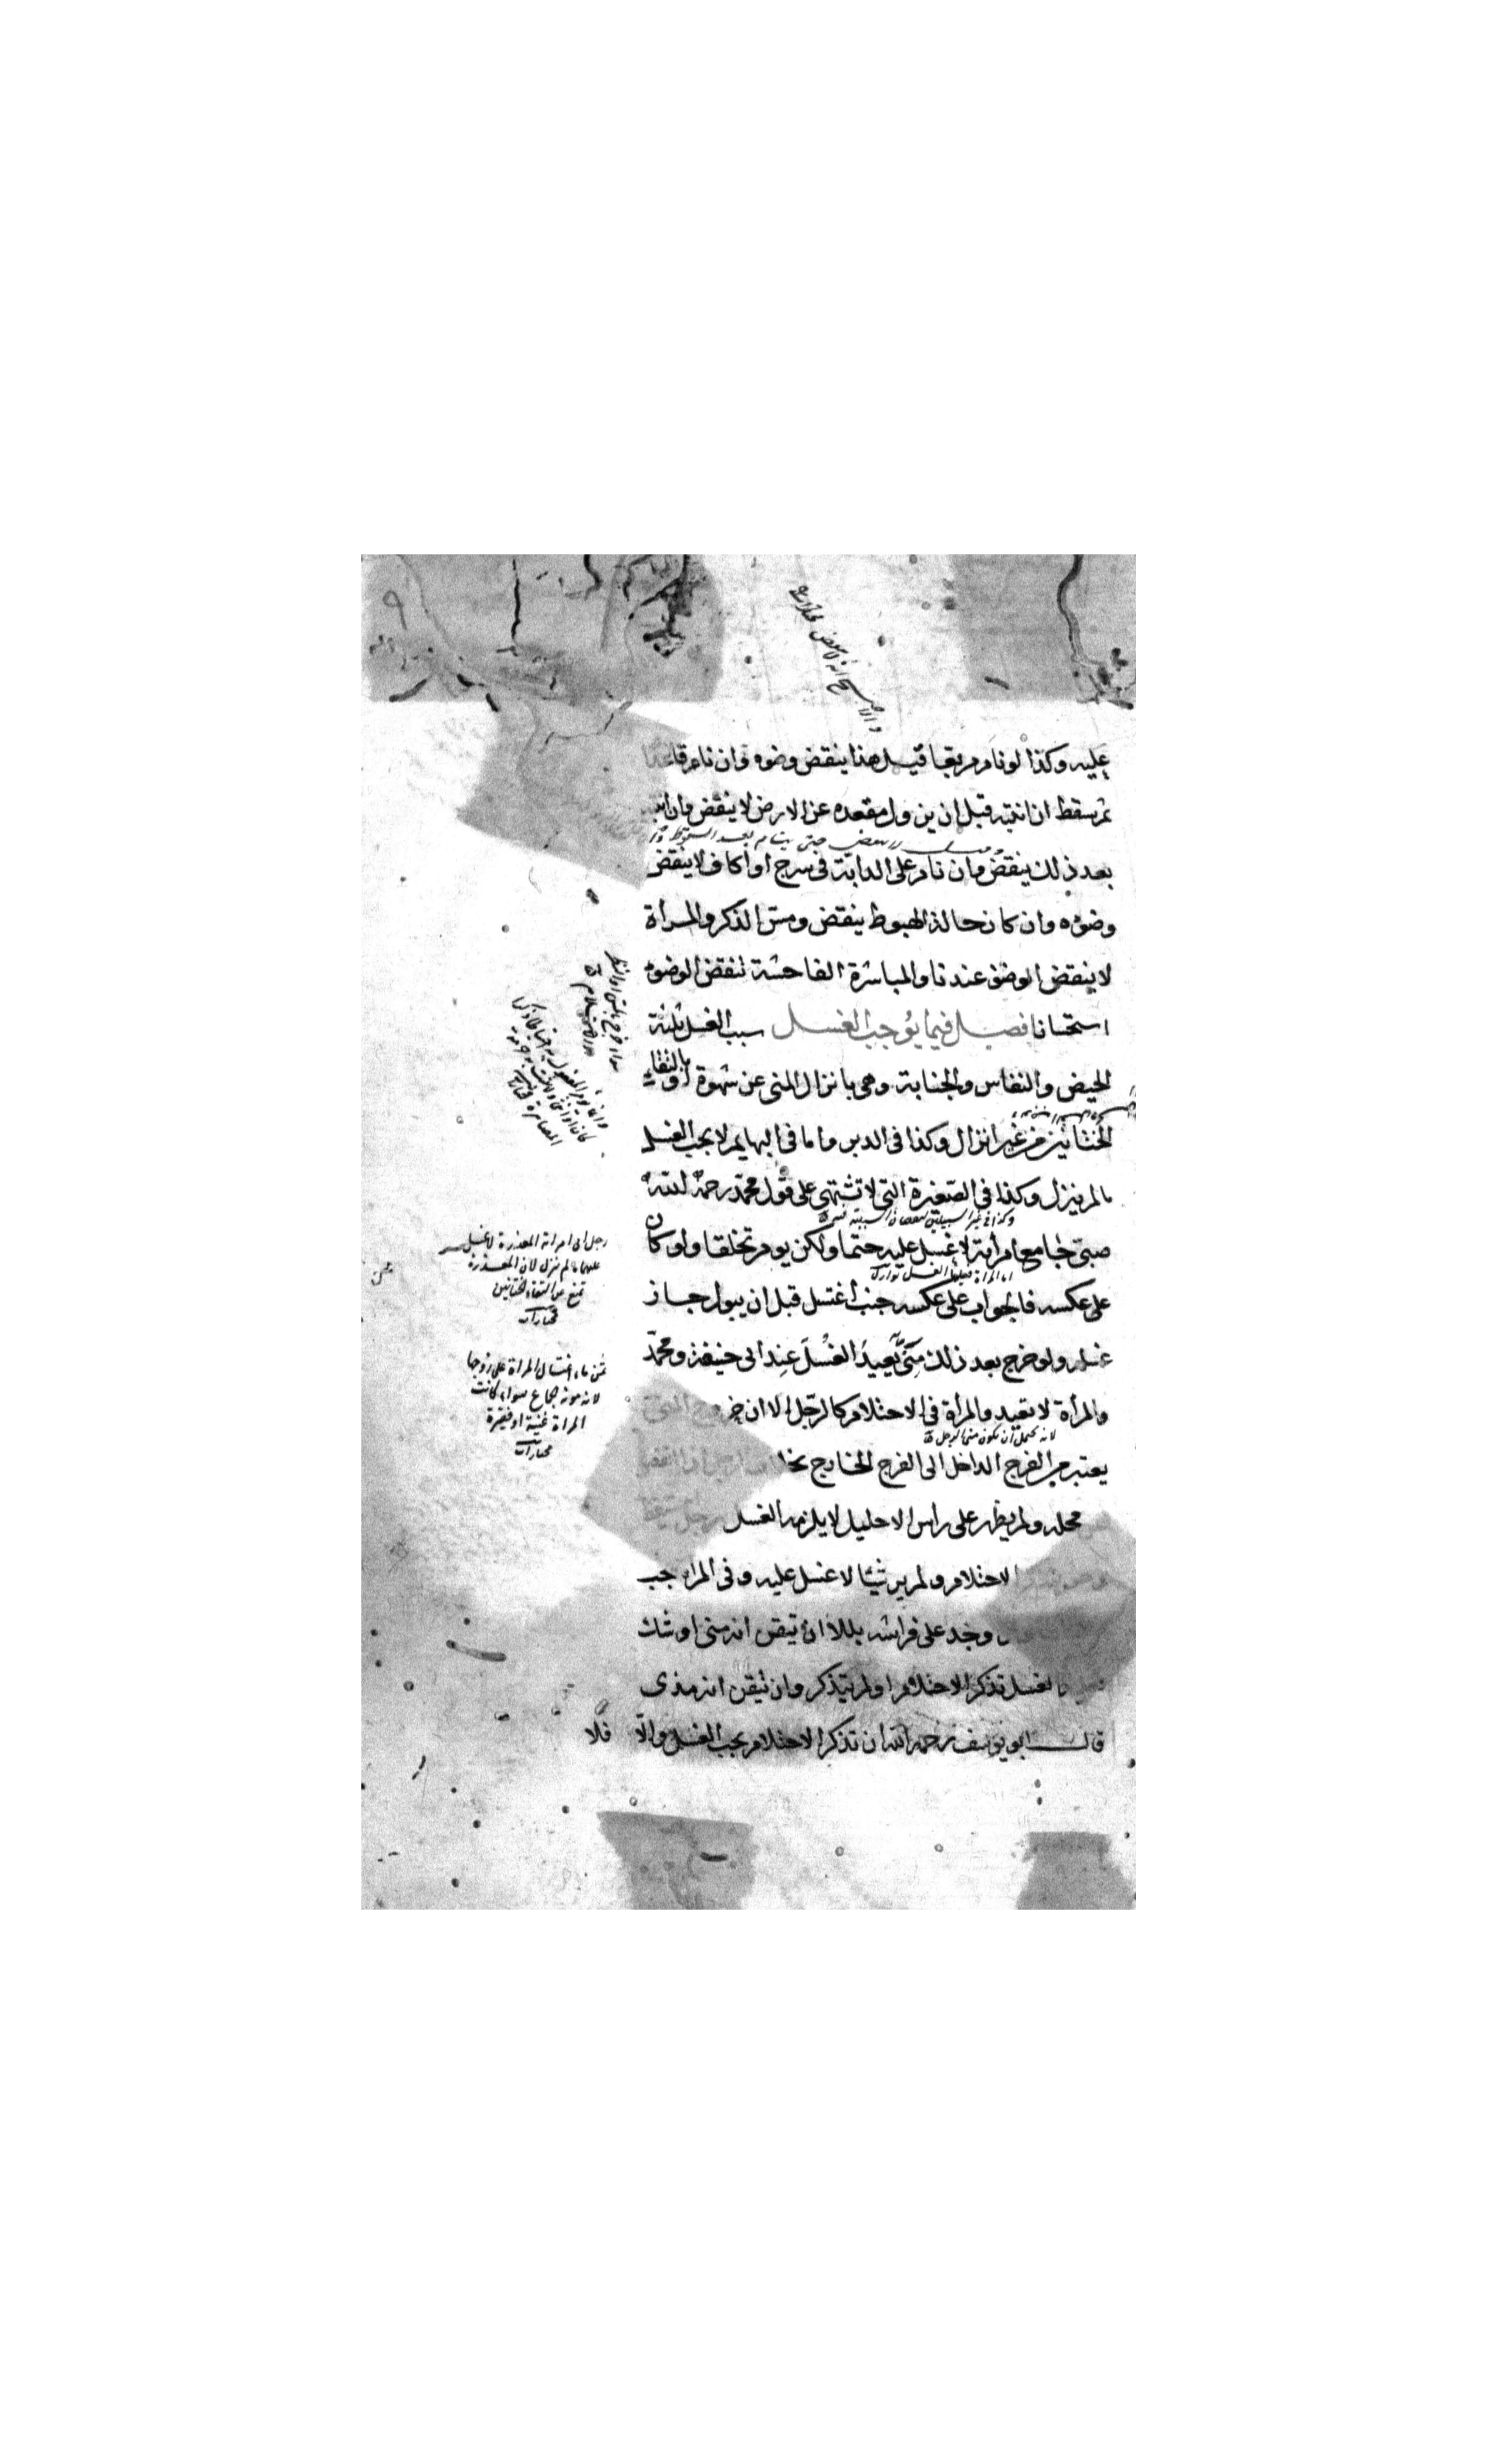 عليه وكذا لو نام مربعا قيل هذا ينقض وضوه وان نام قاعدا
ثم سقط ان انتبه قبل ان يزول مقعده عن الارض لا ينقض وان انتبه
بعد ذلك ينقض وان نام على الدابة في سرج او اكاف لا ينقض
وضوءه وان كان حالة الهبوط ينقض ومس الذكر والمرأة
لا ينقض الوضوء عندنا والمباشرة الفاحشة تنقض الوضوء
استحسانا فصل فيما يوجب الغسل سبب الغسل ثلثة
الحيض والنفاس والجنابة وهي بانزال المني عن شهوة او بالتقاء
الختانين من غير انزال وكذا في الدبر واما في البهايم لا يجب الغسل
مالم ينزل وكذا في الصغيرة التي لا تشتهى على قول محمد رحمه الله
صبي جامع امراته لا غسل عليه حتما ولكن يومر تخلقا ولو كان
اما المراة فعليها الغسل
على عكسه فالجواب على عكسه جنب اغتسل قبل ان يبول جاز
غسله ولو خرج بعد ذلك مني يعيد الغسل عند ابي حنيفة ومحمد
والمرأة لا تعيد والمرأة في الاحتلام كالرجل الا ان خروج المني
لانه يحتمل ان يكون مني الرجل
يعتبر من الفرج الداخل الى الفرج الخارج بخلاف الرجل اذا انفصل
عن محله ولم يظهر على راس الاحليل لا يلزمه الغسل رجل استيقظ
الاحتلام ولم ير شيئا لا غسل عليه وفي المراة يجب
وجد على فراشه بللا ان تيقن انه مني او شك
الغسل تذكر الاحتلام او لم يتذكر وان تيقن انه مذى
قال ابو يوسف رحمه الله ان تذكر الاحتلام يجب الغسل والا فلا
رجل اتى امراته العذرة لا غسل
عليهما مالم ينزل لان العذرة
تمنع عن التقاء الختانين
مختارات
ثمن ماء اغتسال المراة على زوجها
لانه مونة جماع سواء كانت
المراة غنية او فقيرة
مختارات
٩